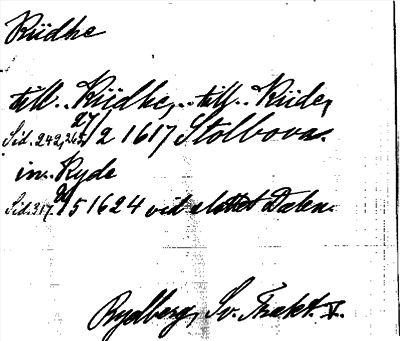 Rüdhe
till. Rüdhe, till. Rüde,
Sid. 242, 263. 27/2 1617 Stolbova.
in. Ryde
Sid. 317. /5 1624 vid slottet Dalen.
Rydberg, Sv. Trakt. V.